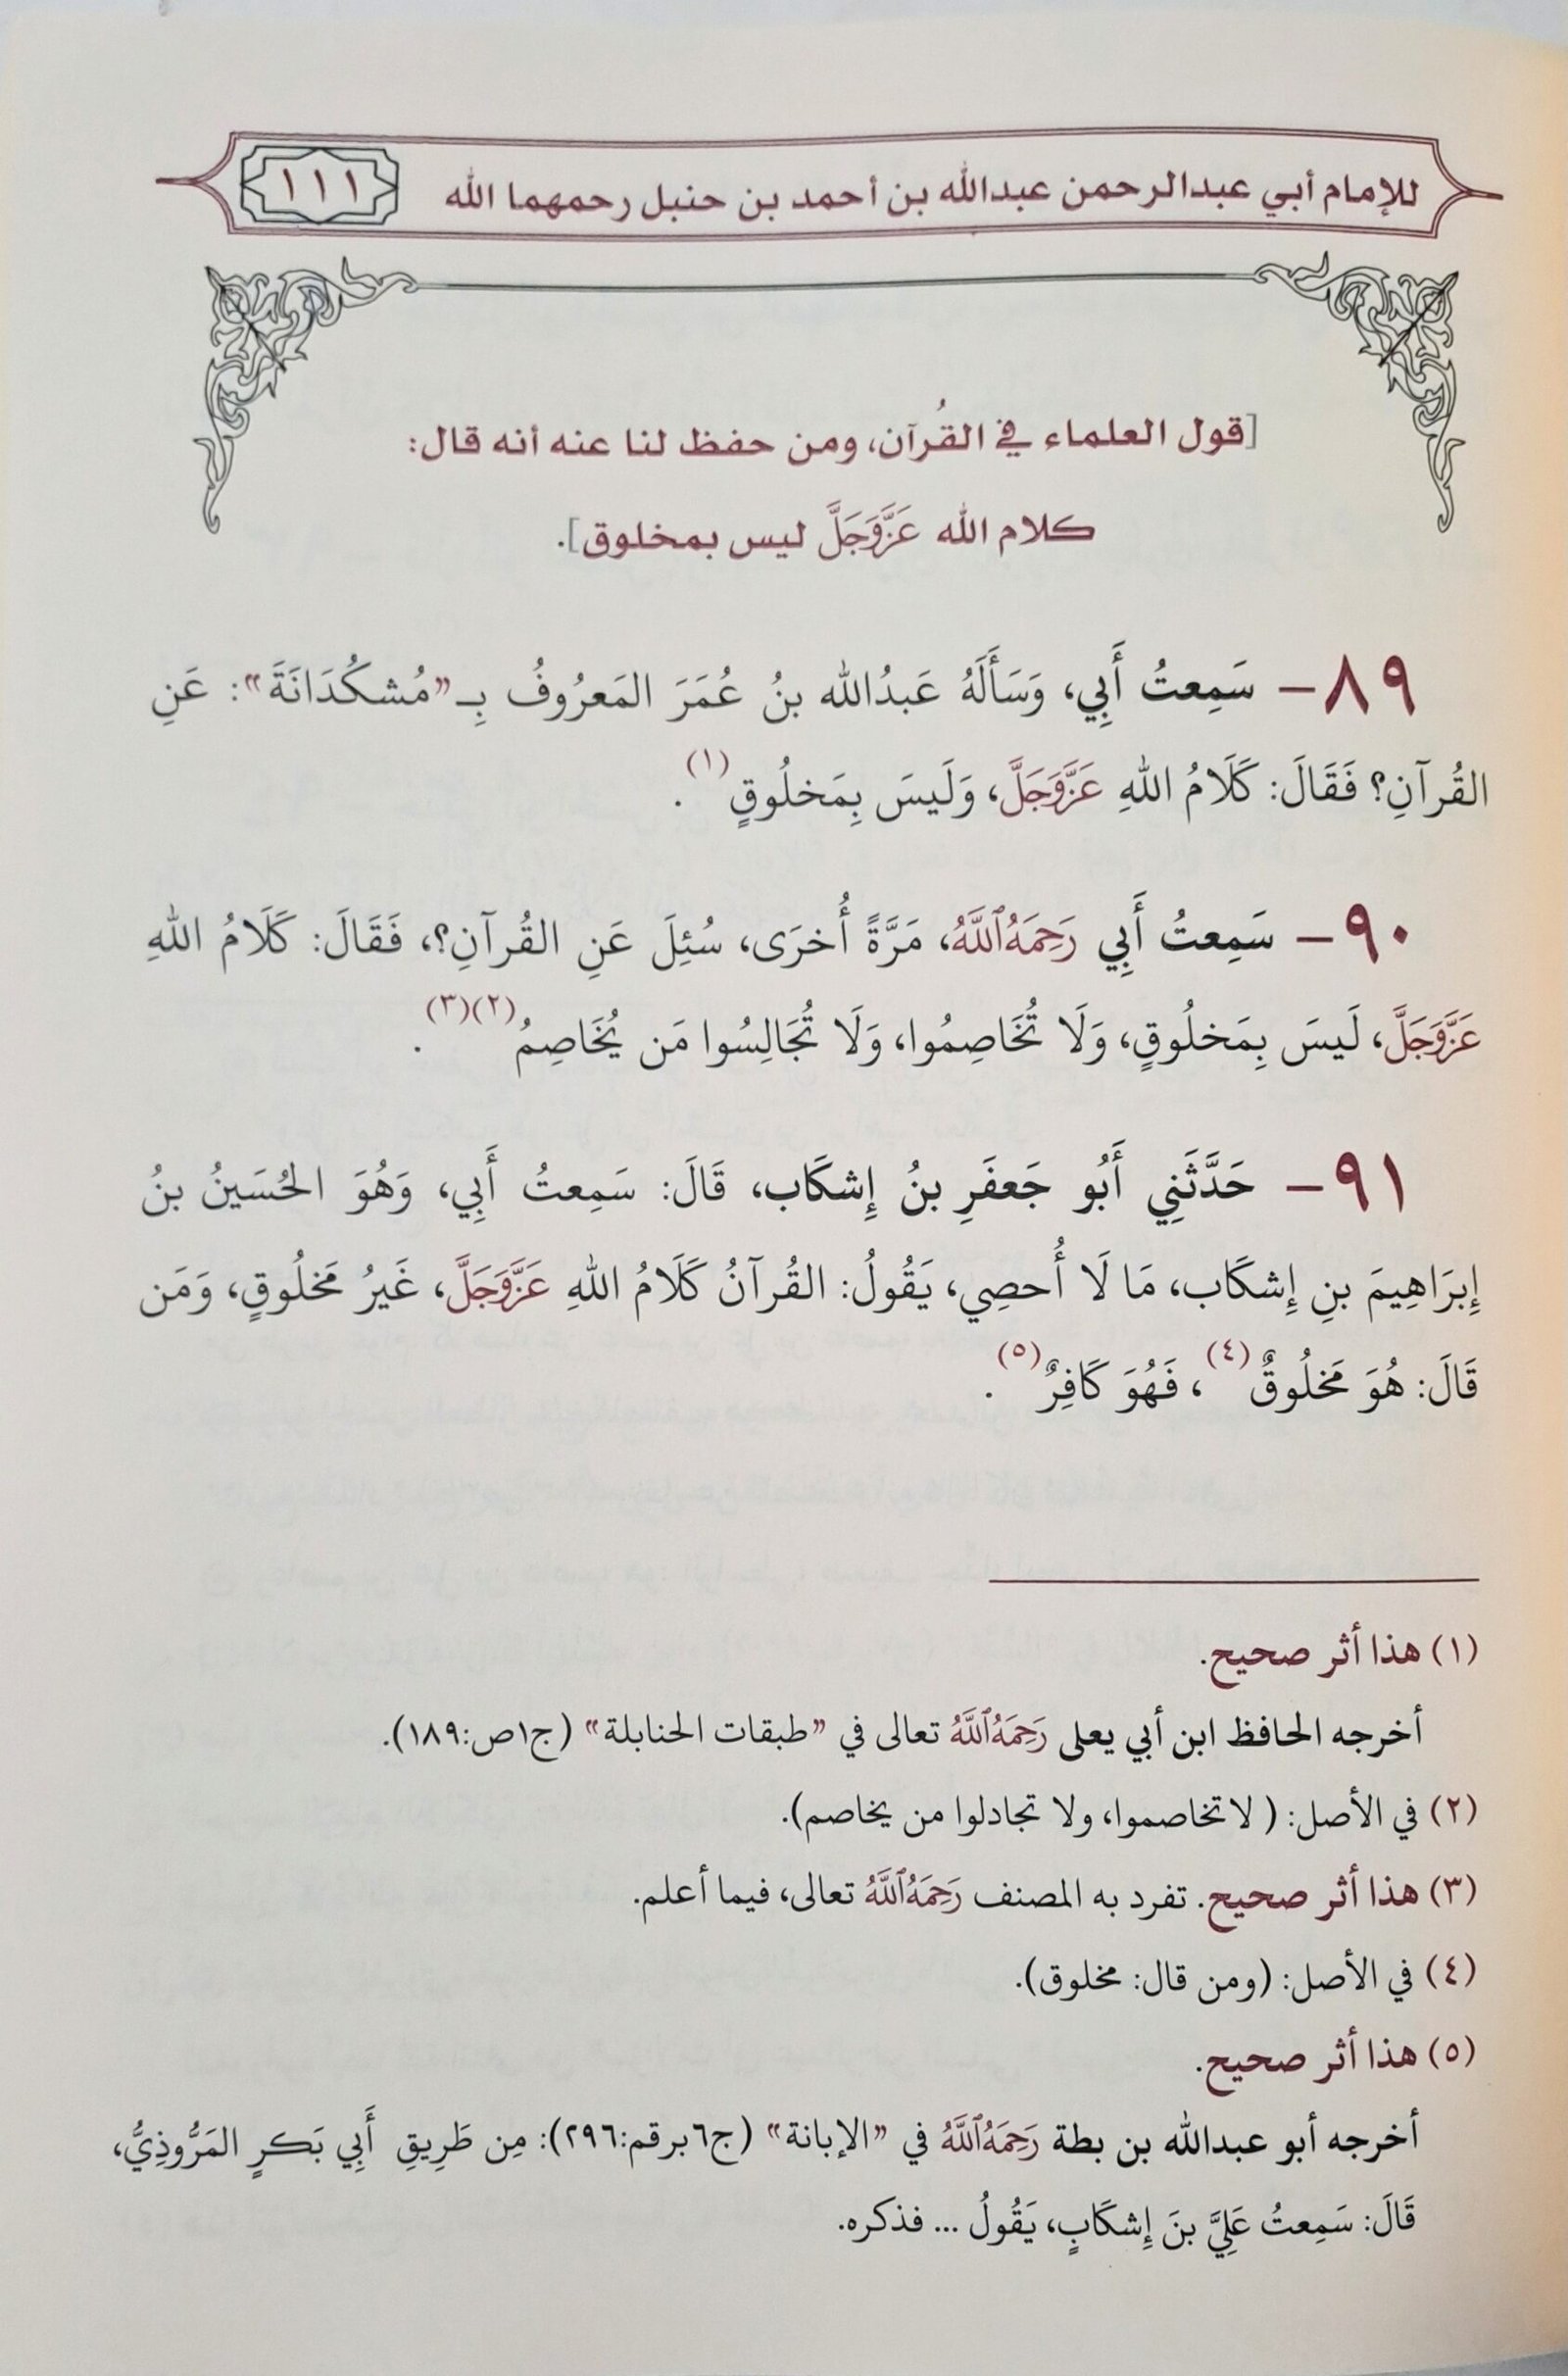 للإمام أبي عبدالرحمن عبدالله بن أحمد بن حنبل رحمهما الله ١١١
[قول العلماء في القُرآن، ومن حفظ لنا عنه أنه قال:
كلام الله عَزَّوَجَلَّ ليس بمخلوق].
٨٩- سَمِعتُ أَبِي، وَسَأَلَهُ عَبدُالله بنُ عُمَرَ المَعرُوفُ بِـ«مُشكُدَانَةَ»: عَنِ
القُرآنِ؟ فَقَالَ: كَلَامُ اللهِ عَزَّوَجَلَّ، وَلَيسَ بِمَخلُوقٍ(١).
٩٠- سَمِعتُ أَبِي رَحِمَهُ ٱللَّهُ، مَرَّةً أُخرَى، سُئِلَ عَنِ القُرآنِ؟، فَقَالَ: كَلَامُ اللهِ
عَزَّوَجَلَّ، لَيسَ بِمَخلُوقٍ، وَلَا تُخَاصِمُوا، وَلَا تُجَالِسُوا مَن يُخَاصِمُ(٢)(٣).
٩١- حَدَّثَنِي أَبُو جَعفَرِ بنُ إِشكَاب، قَالَ: سَمِعتُ أَبِي، وَهُوَ الحُسَينُ بنُ
إِبرَاهِيمَ بنِ إِشكَاب، مَا لَا أُحصِي، يَقُولُ: القُرآنُ كَلَامُ اللهِ عَزَّوَجَلَّ، غَيرُ مَخلُوقٍ، وَمَن
قَالَ: هُوَ مَخلُوقٌ(٤)، فَهُوَ كَافِرٌ(٥).
(١) هذا أثر صحيح.
أخرجه الحافظ ابن أبي يعلى رَحِمَهُ ٱللَّهُ تعالى في «طبقات الحنابلة» (ج١ص:١٨٩).
(٢) في الأصل: ( لا تخاصموا، ولا تجادلوا من يخاصم).
(٣) هذا أثر صحيح. تفرد به المصنف رَحِمَهُ ٱللَّهُ تعالى، فيما أعلم.
(٤) في الأصل: (ومن قال: مخلوق).
(٥) هذا أثر صحيح.
أخرجه أبو عبدالله بن بطة رَحِمَهُ ٱللَّهُ في «الإبانة» (ج٦برقم:٢٩٦): مِن طَرِيقِ أَبِي بَكرٍ المَرُّوذِيُّ،
قَالَ: سَمِعتُ عَلِيَّ بنَ إِشكَابٍ، يَقُولُ ... فذكره.